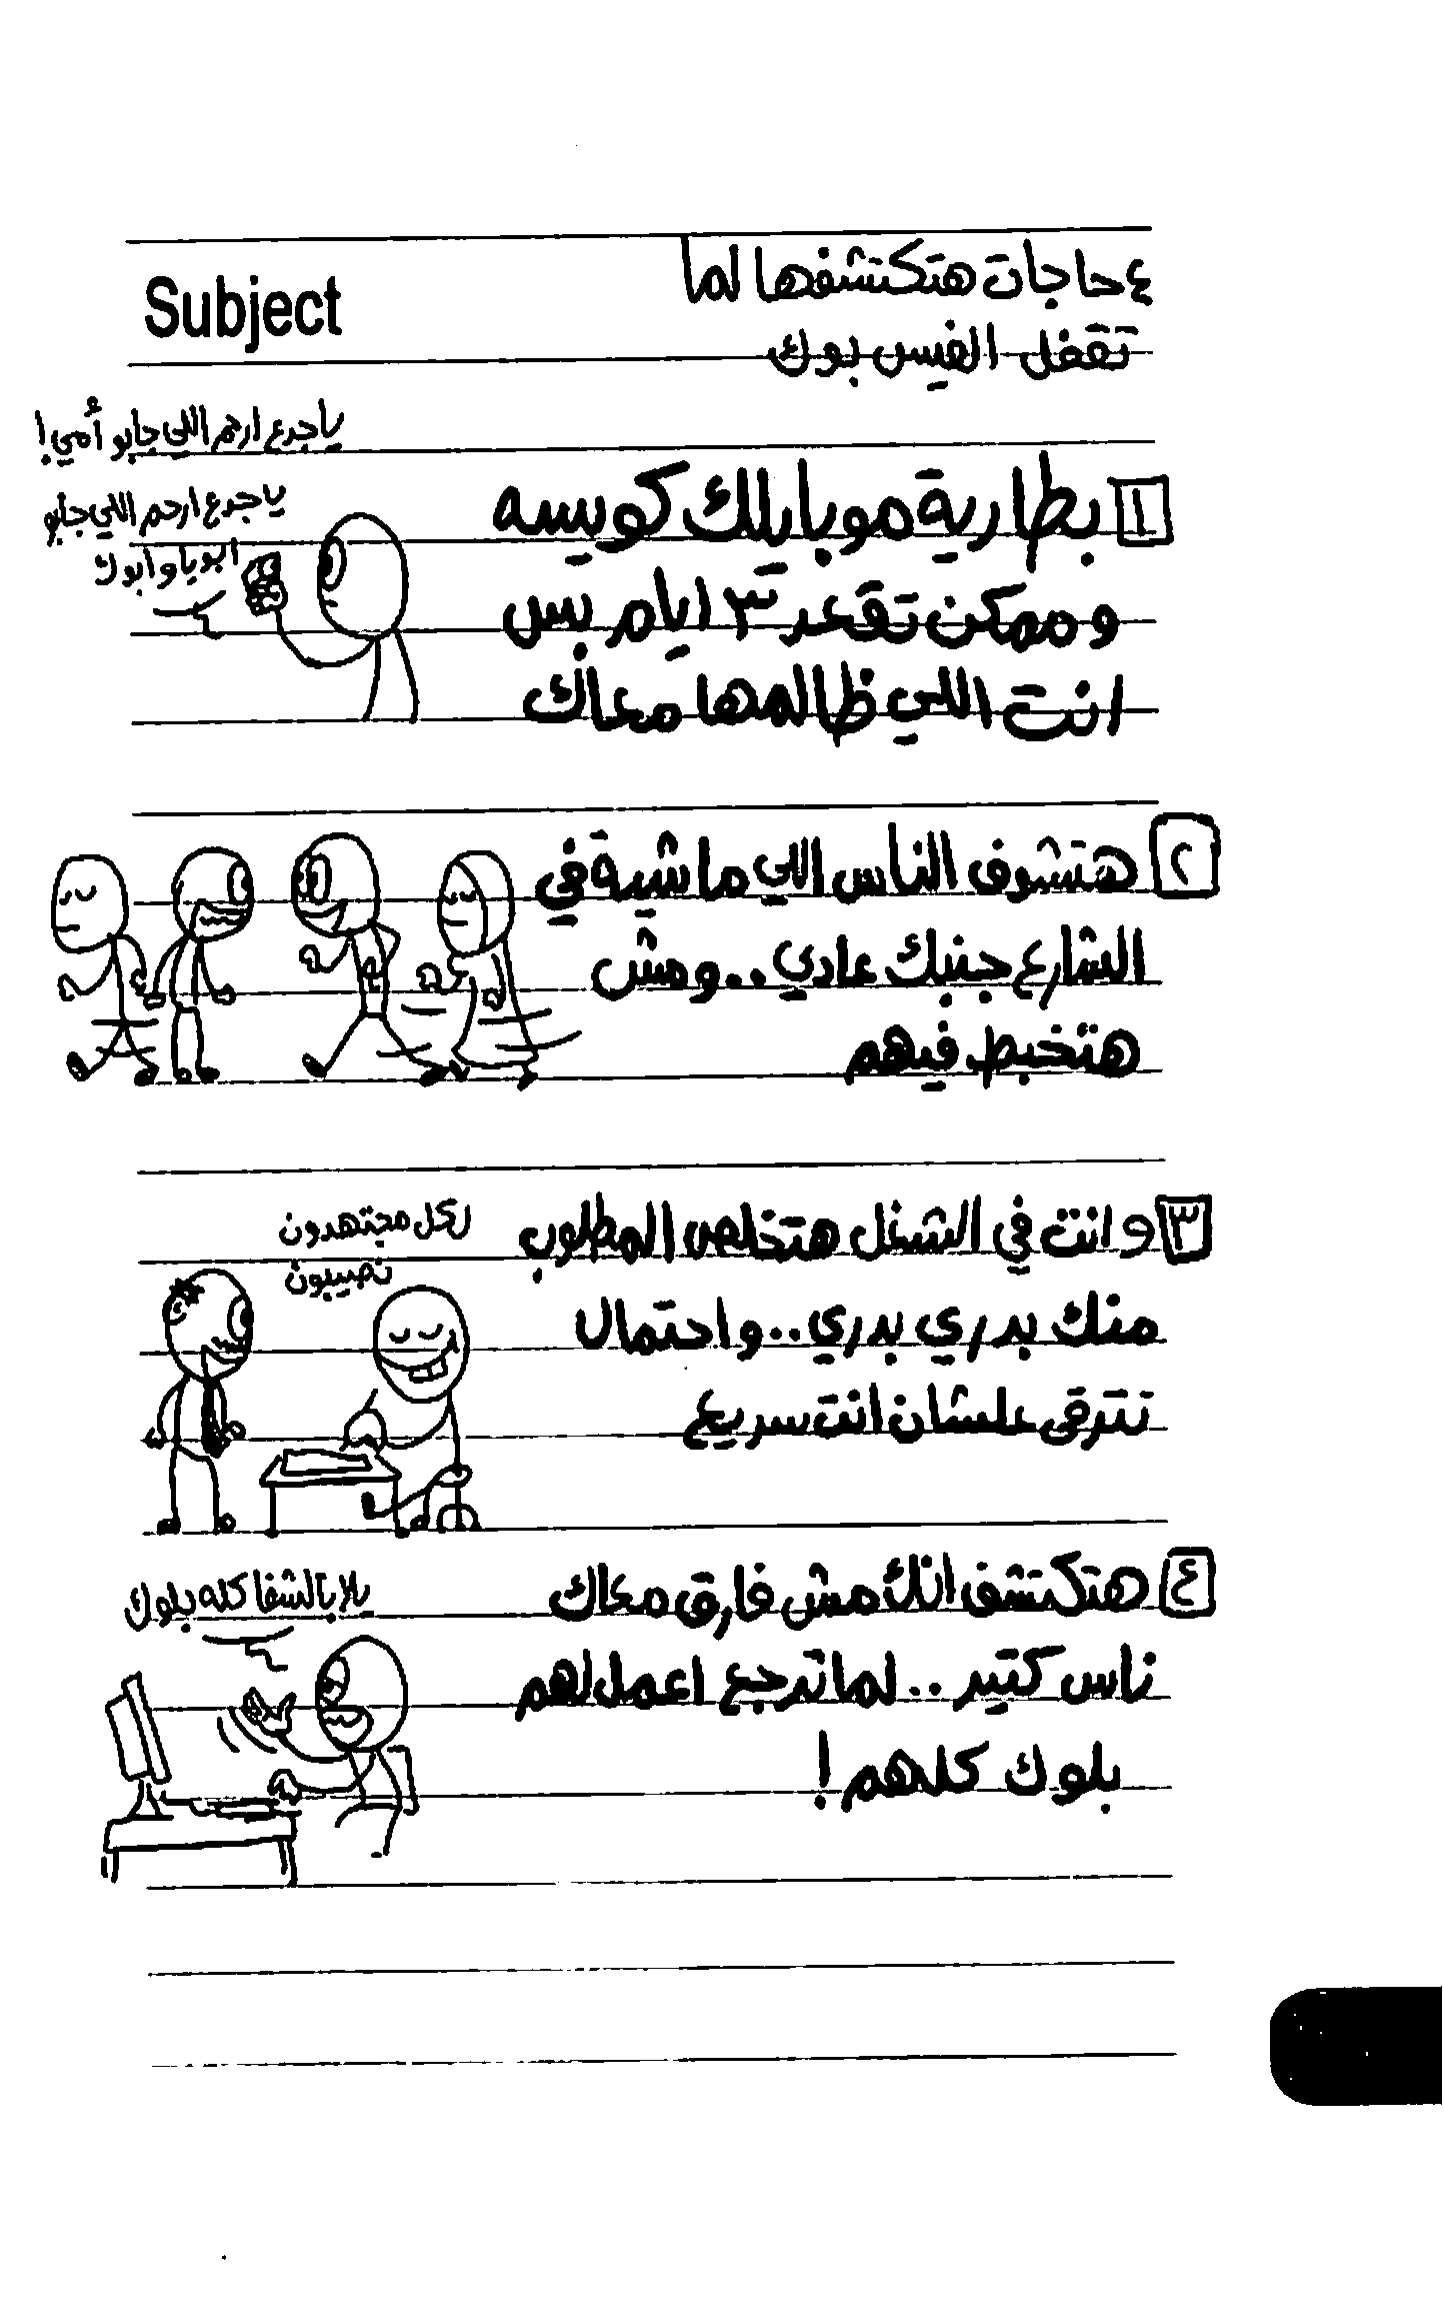 Subject
٤ حاجات هتكتشفها لما
تقفل الفيس بوك
يا جدع ارحم اللي جابو أمي!
يا جدع ارحم اللي جابو
ابويا و ابوك
١ بطارية موبايلك كويسه
وممكن تقعد ٣ ايام بس
انت اللي ظالمها معاك
٢ هتشوف الناس اللي ماشية في
الشارع جنبك عادي .. ومش
هتخبط فيهم
٣ وانت في الشغل هتخلص المطلوب
منك بدري بدري .. واحتمال
تترقى علشان انت سريع
لكل مجتهدون
نصيبون
٤ هتكتشف انك مش فارق معاك
ناس كتير .. لما ترجع اعمل لهم
بلوك كلهم!
يلا بالشفا كله بلوك